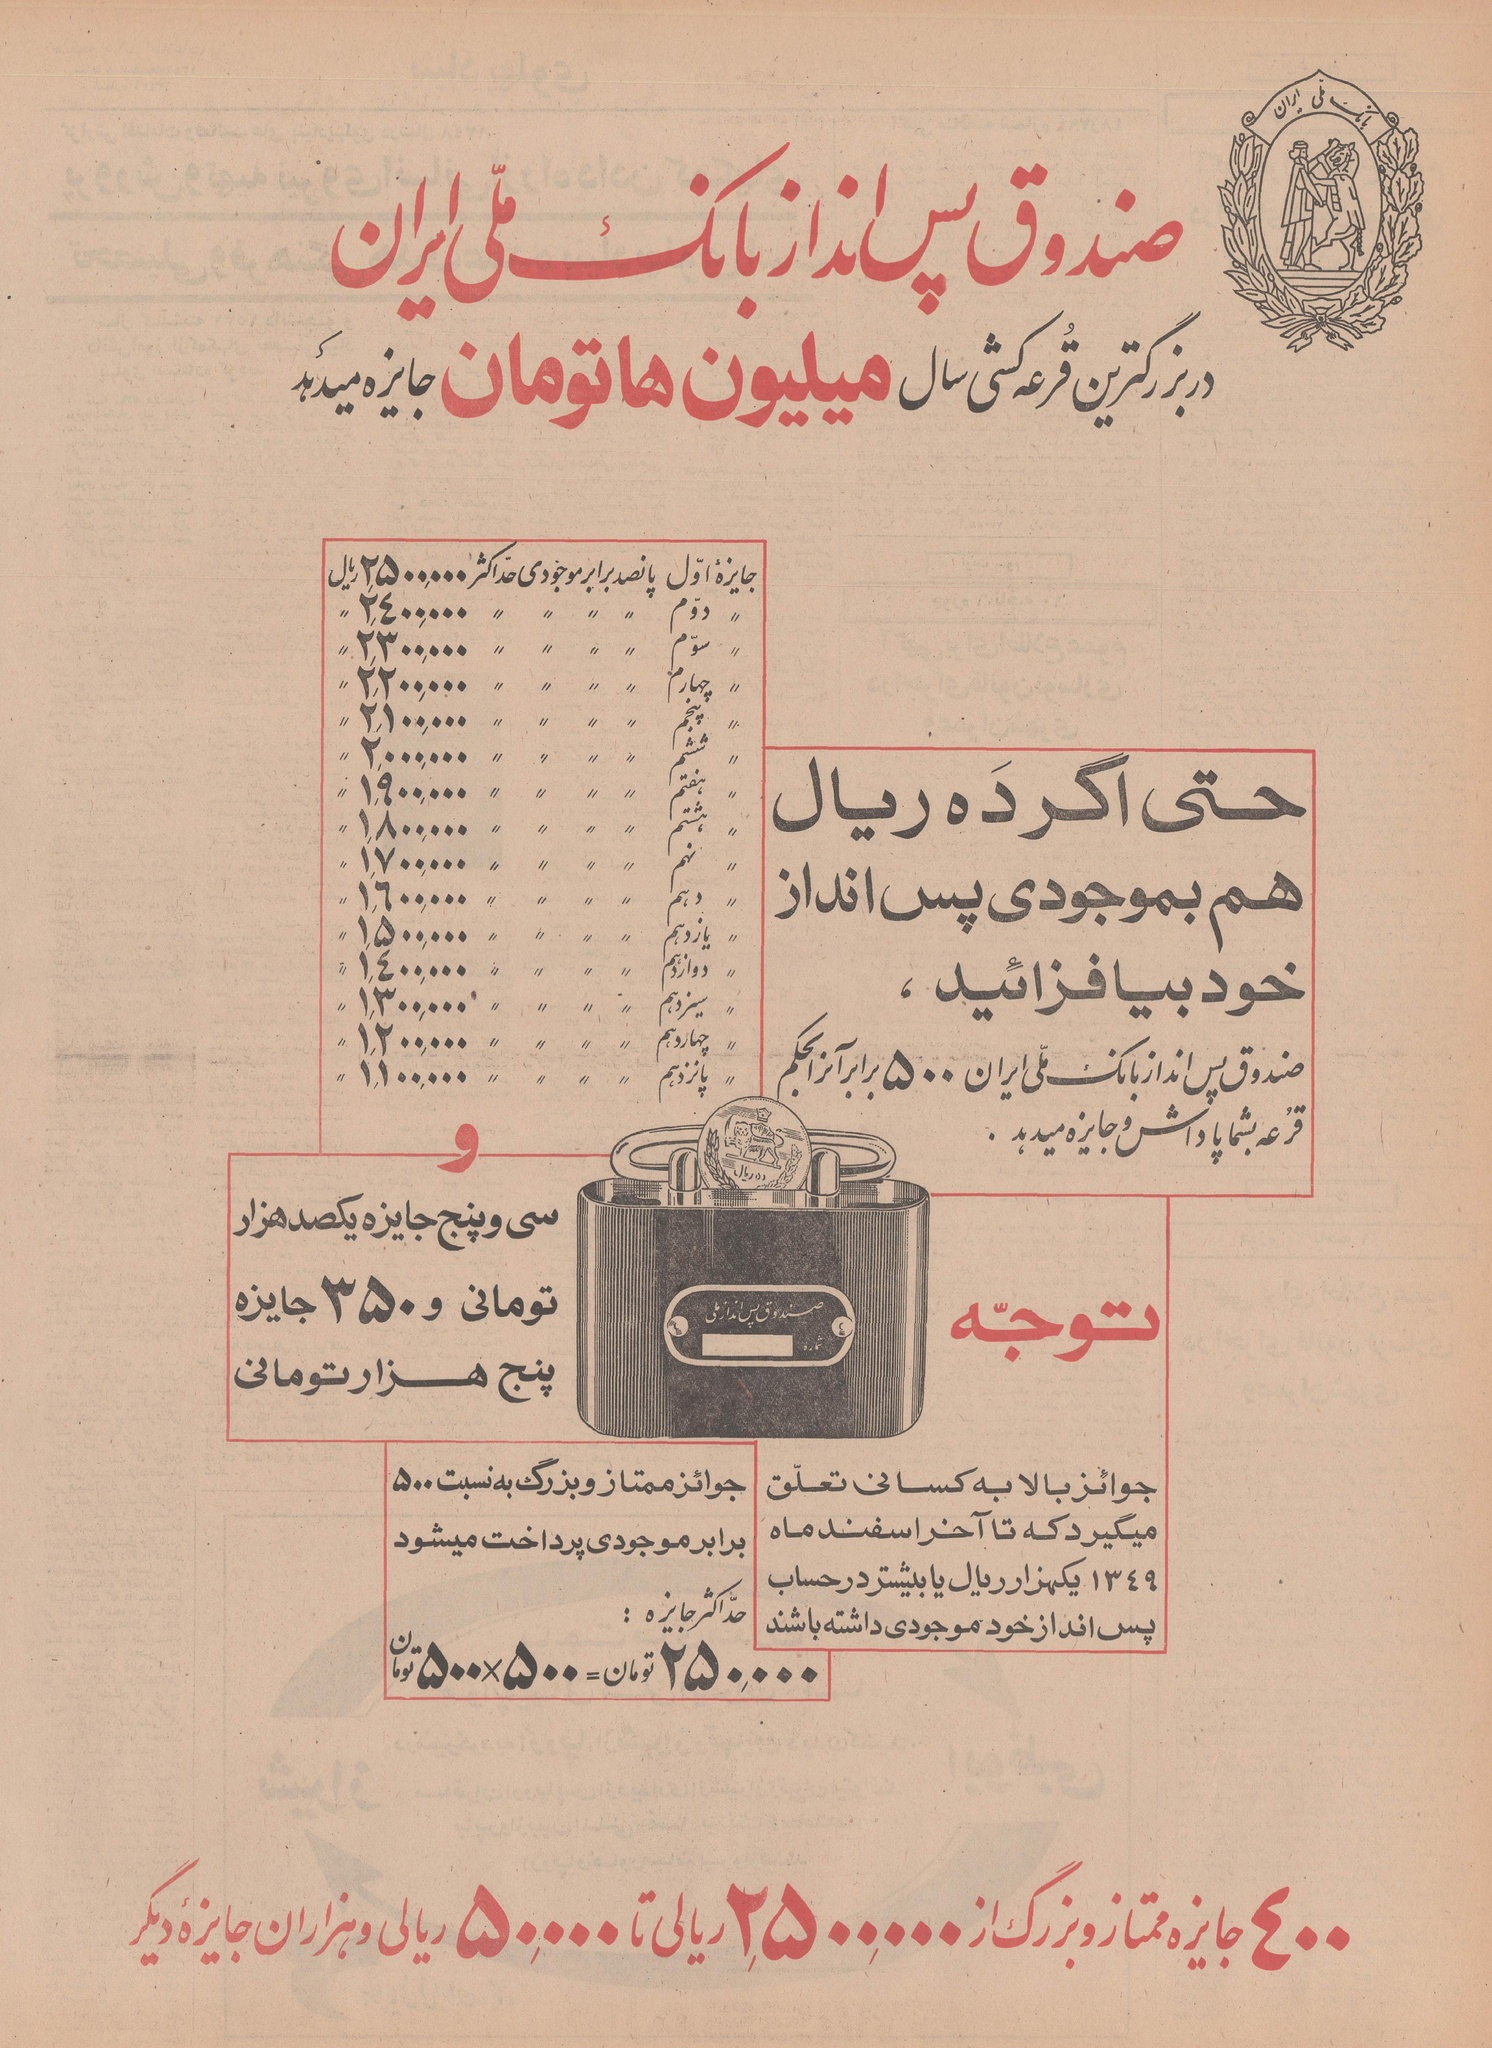 بانک ملی ایران
صندوق پس انداز بانک ملّی ایران
در بزرگترین قُرعه کشی سال میلیون ها تومان جایزه میدهد
جایزهٔ اوّل پانصد برابر موجودی حدّاکثر ۲,۵۰۰,۰۰۰ ریال
〃 دوّم 〃 〃 〃 〃 ۲,۴۰۰,۰۰۰ 〃
〃 سوّم 〃 〃 〃 〃 ۲,۳۰۰,۰۰۰ 〃
〃 چهارم 〃 〃 〃 〃 ۲,۲۰۰,۰۰۰ 〃
〃 پنجم 〃 〃 〃 〃 ۲,۱۰۰,۰۰۰ 〃
〃 ششم 〃 〃 〃 〃 ۲,۰۰۰,۰۰۰ 〃
〃 هفتم 〃 〃 〃 〃 ۱,۹۰۰,۰۰۰ 〃
〃 هشتم 〃 〃 〃 〃 ۱,۸۰۰,۰۰۰ 〃
〃 نهم 〃 〃 〃 〃 ۱,۷۰۰,۰۰۰ 〃
〃 دهم 〃 〃 〃 〃 ۱,۶۰۰,۰۰۰ 〃
〃 یازدهم 〃 〃 〃 〃 ۱,۵۰۰,۰۰۰ 〃
〃 دوازدهم 〃 〃 〃 〃 ۱,۴۰۰,۰۰۰ 〃
〃 سیزدهم 〃 〃 〃 〃 ۱,۳۰۰,۰۰۰ 〃
〃 چهاردهم 〃 〃 〃 〃 ۱,۲۰۰,۰۰۰ 〃
〃 پانزدهم 〃 〃 〃 〃 ۱,۱۰۰,۰۰۰ 〃
حتی اگر دَه ریال
هم بموجودی پس انداز
خود بیافزائید ،
صندوق پس انداز بانک ملّی ایران ۵۰۰ برابر آنرا بحکم
قُرعه بشما پاداش و جایزه میدهد .
و
سی و پنج جایزه یکصد هزار
تومانی و ۳۵۰ جایزه
پنج هزار تومانی
ده ریال
صندوق پس انداز ملی
شماره
توجّه
جوائز بالا به کسانی تعلّق
میگیرد که تا آخر اسفند ماه
۱۳۴۹ یکهزار ریال یا بیشتر در حساب
پس انداز خود موجودی داشته باشند
جوائز ممتاز و بزرگ به نسبت ۵۰۰
برابر موجودی پرداخت میشود
حدّاکثر جایزه :
۲۵۰,۰۰۰ تومان = ۵۰۰×۵۰۰ تومان
۴۰۰ جایزه ممتاز و بزرگ از ۲,۵۰۰,۰۰۰ ریالی تا ۵۰,۰۰۰ ریالی و هزاران جایزهٔ دیگر